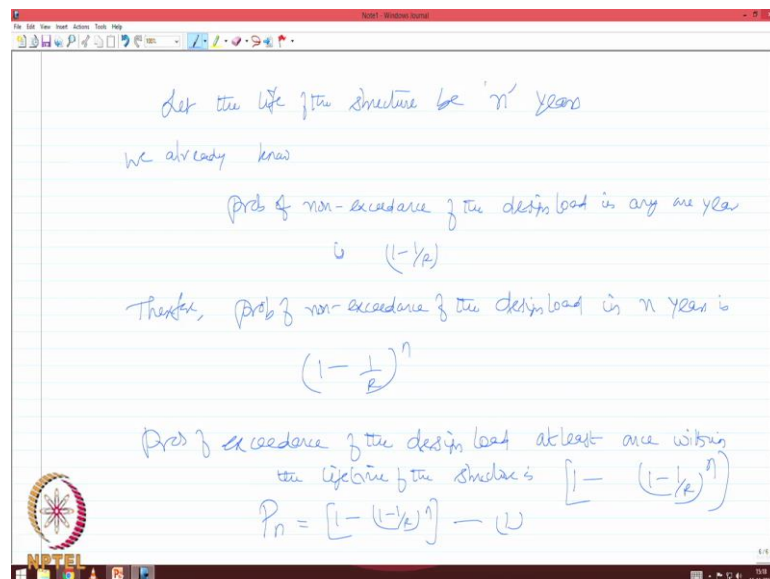 Note1 - Windows Journal
File Edit View Insert Actions Tools Help
Let the life of the structure be 'n' years
we already know
prob of non-exceedance of the design load in any one year
is (1-1/R)
Therefore, prob of non-exceedance of the design load in n years is
(1 - 1/R)^n
Prob of exceedance of the design load atleast once within
the lifetime of the structure is [1 - (1-1/R)^n]
Pn = [1 - (1-1/R)^n] — (1)
NPTEL
6/6